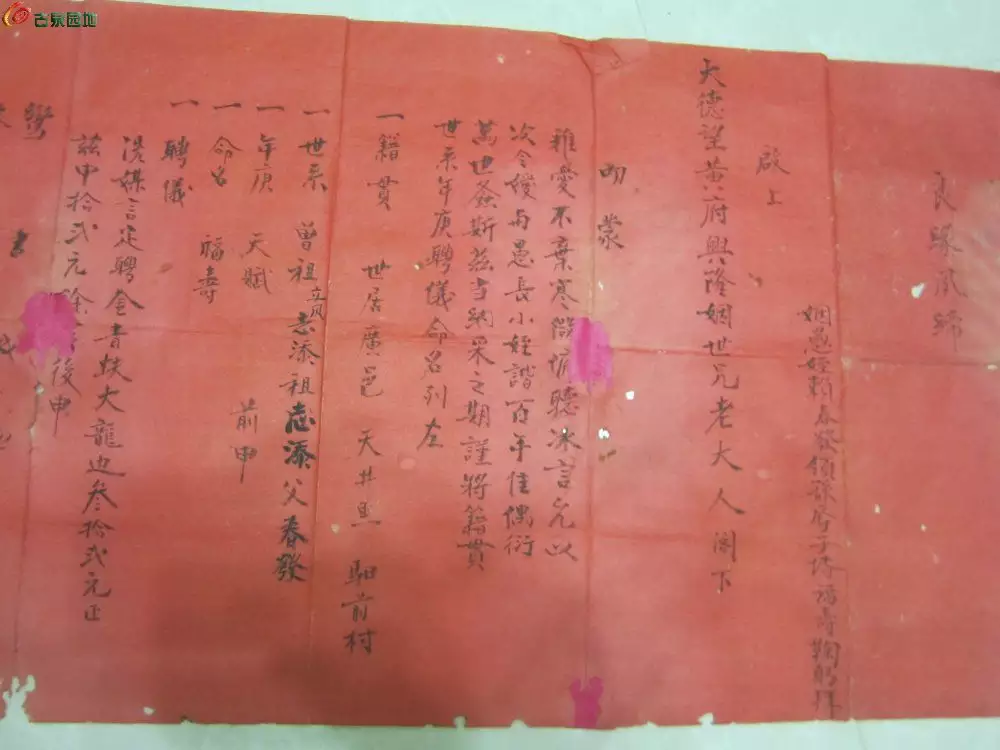 古泉园地
良 鳳歸
姻愚姪賴春發領 子 福壽鞠躬拜
啟上
大德望黄府興隆姻世兄老大人閣下
叨蒙
雅愛不棄寒微 聽冰言允以
次令嬡與愚長小姪諧百年佳偶衍
萬世螽斯茲当納采之期謹將籍貫
世系年庚聘儀命名列左
一籍貫 世居廣邑 天井 前村
一世系 曾祖立凤 志添祖志添父春發
一年庚 天賦 前申
一命名 福壽
一聘儀
憑媒言定聘金青蚨大龍边叁拾弍元正
茲申拾弍元餘 後申
鸞 書